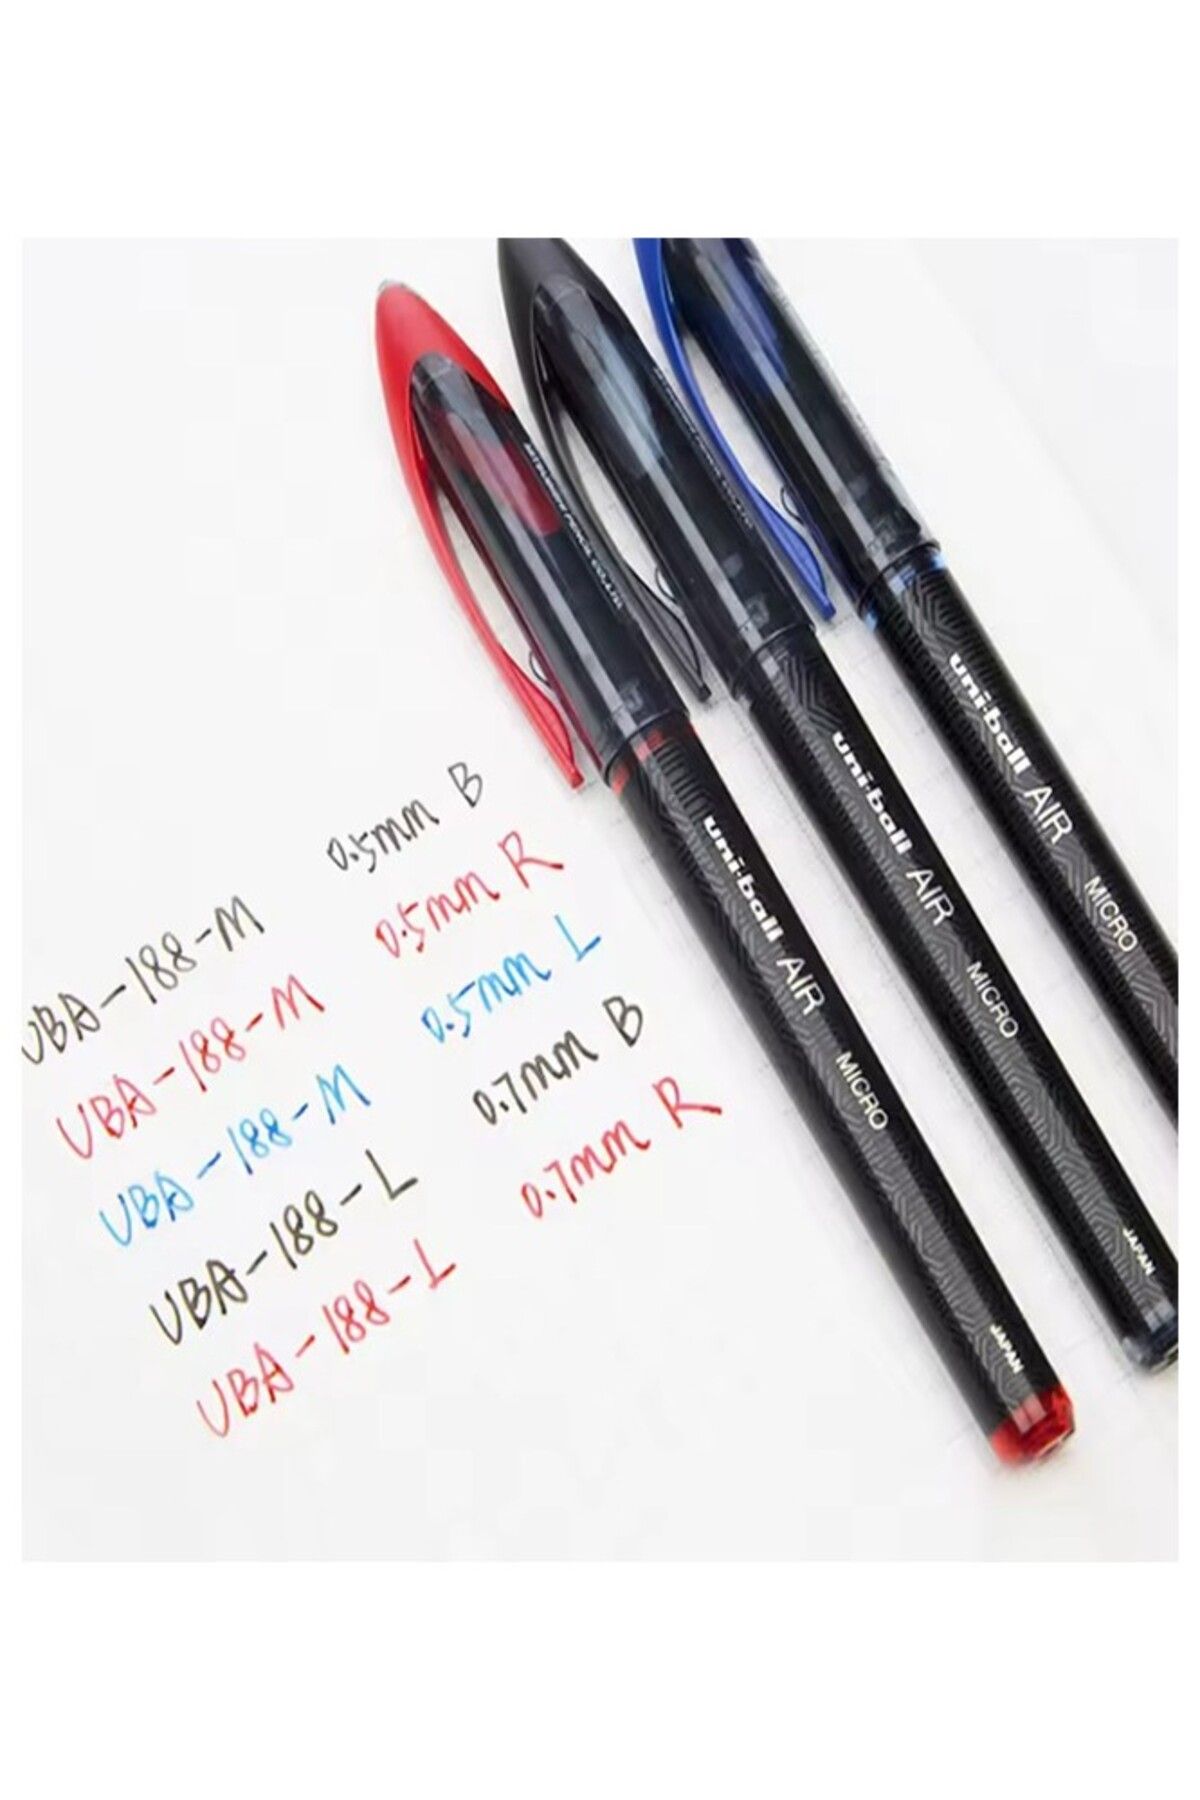 UBA-188-M 0.5mm B
UBA-188-M 0.5mm R
UBA-188-M 0.5mm L
UBA-188-L 0.7mm B
UBA-188-L 0.7mm R
MITSUBISHI PENCIL CO., LTD.
uni-ball AIR MICRO JAPAN
uni-ball AIR MICRO JAPAN
uni-ball AIR MICRO